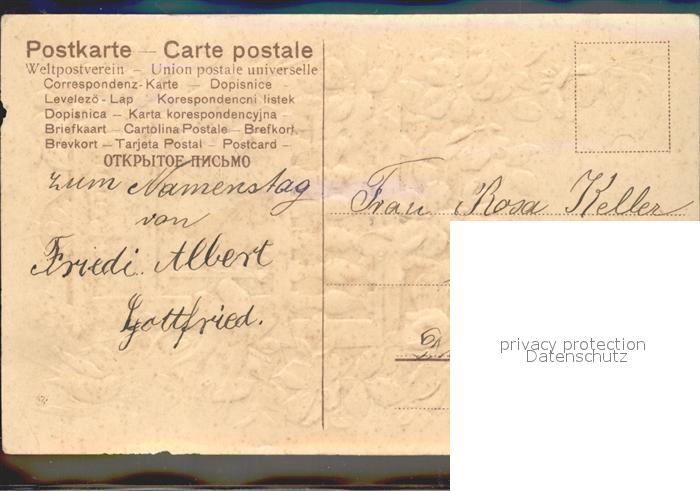 Postkarte — Carte postale
Weltpostverein – Union postale universelle
Correspondenz-Karte — Dopisnice
Levelező-Lap Korespondencni listek
Dopisnica – Karta korespondencyjna –
Briefkaart – Cartolina Postale – Brefkort
Brevkort – Tarjeta Postal – Postcard –
ОТКРЫТОЕ ПИСЬМО
zum Namenstag
von
Friedi. Albert
Gottfried.
Frau Rosa Keller
privacy protection
Datenschutz